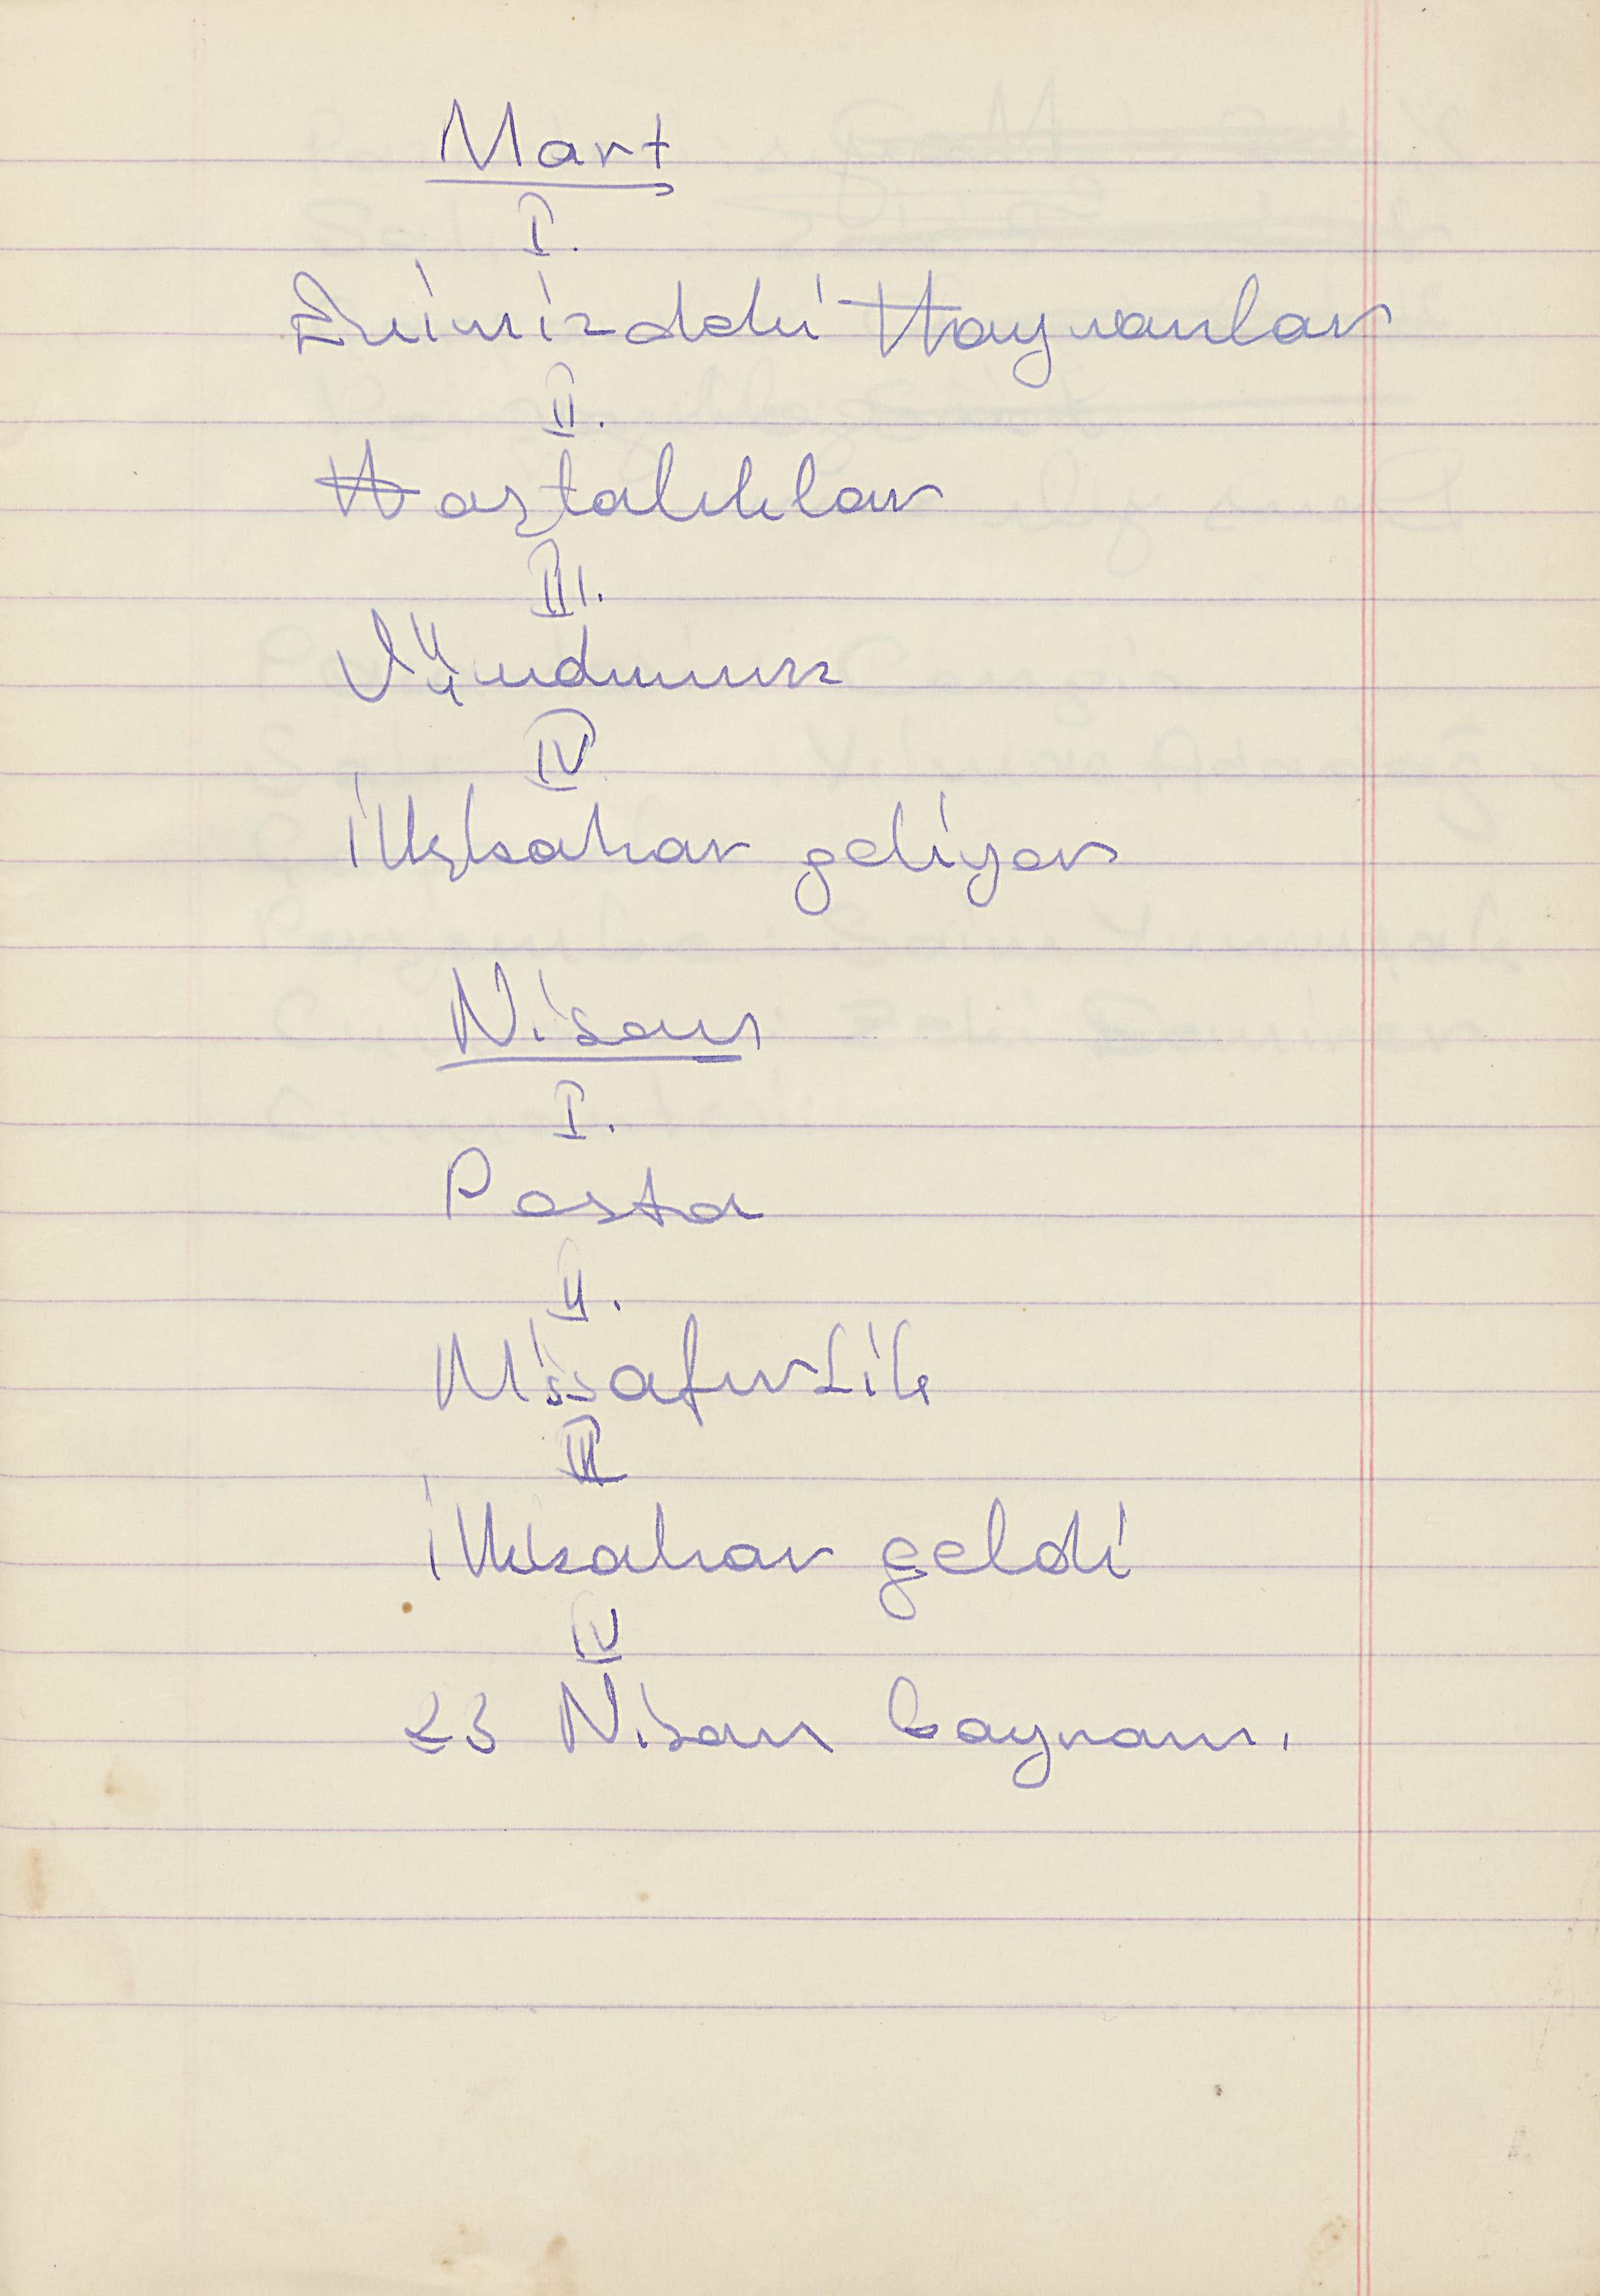 Mart
I.
Evimizdeki Hayvanlar
II.
Hastalıklar
III.
Vücudumuz
IV
İlkbahar geliyor
Nisan
I.
Posta
II.
Misafirlik
III
İlkbahar geldi
IV
23 Nisan bayramı